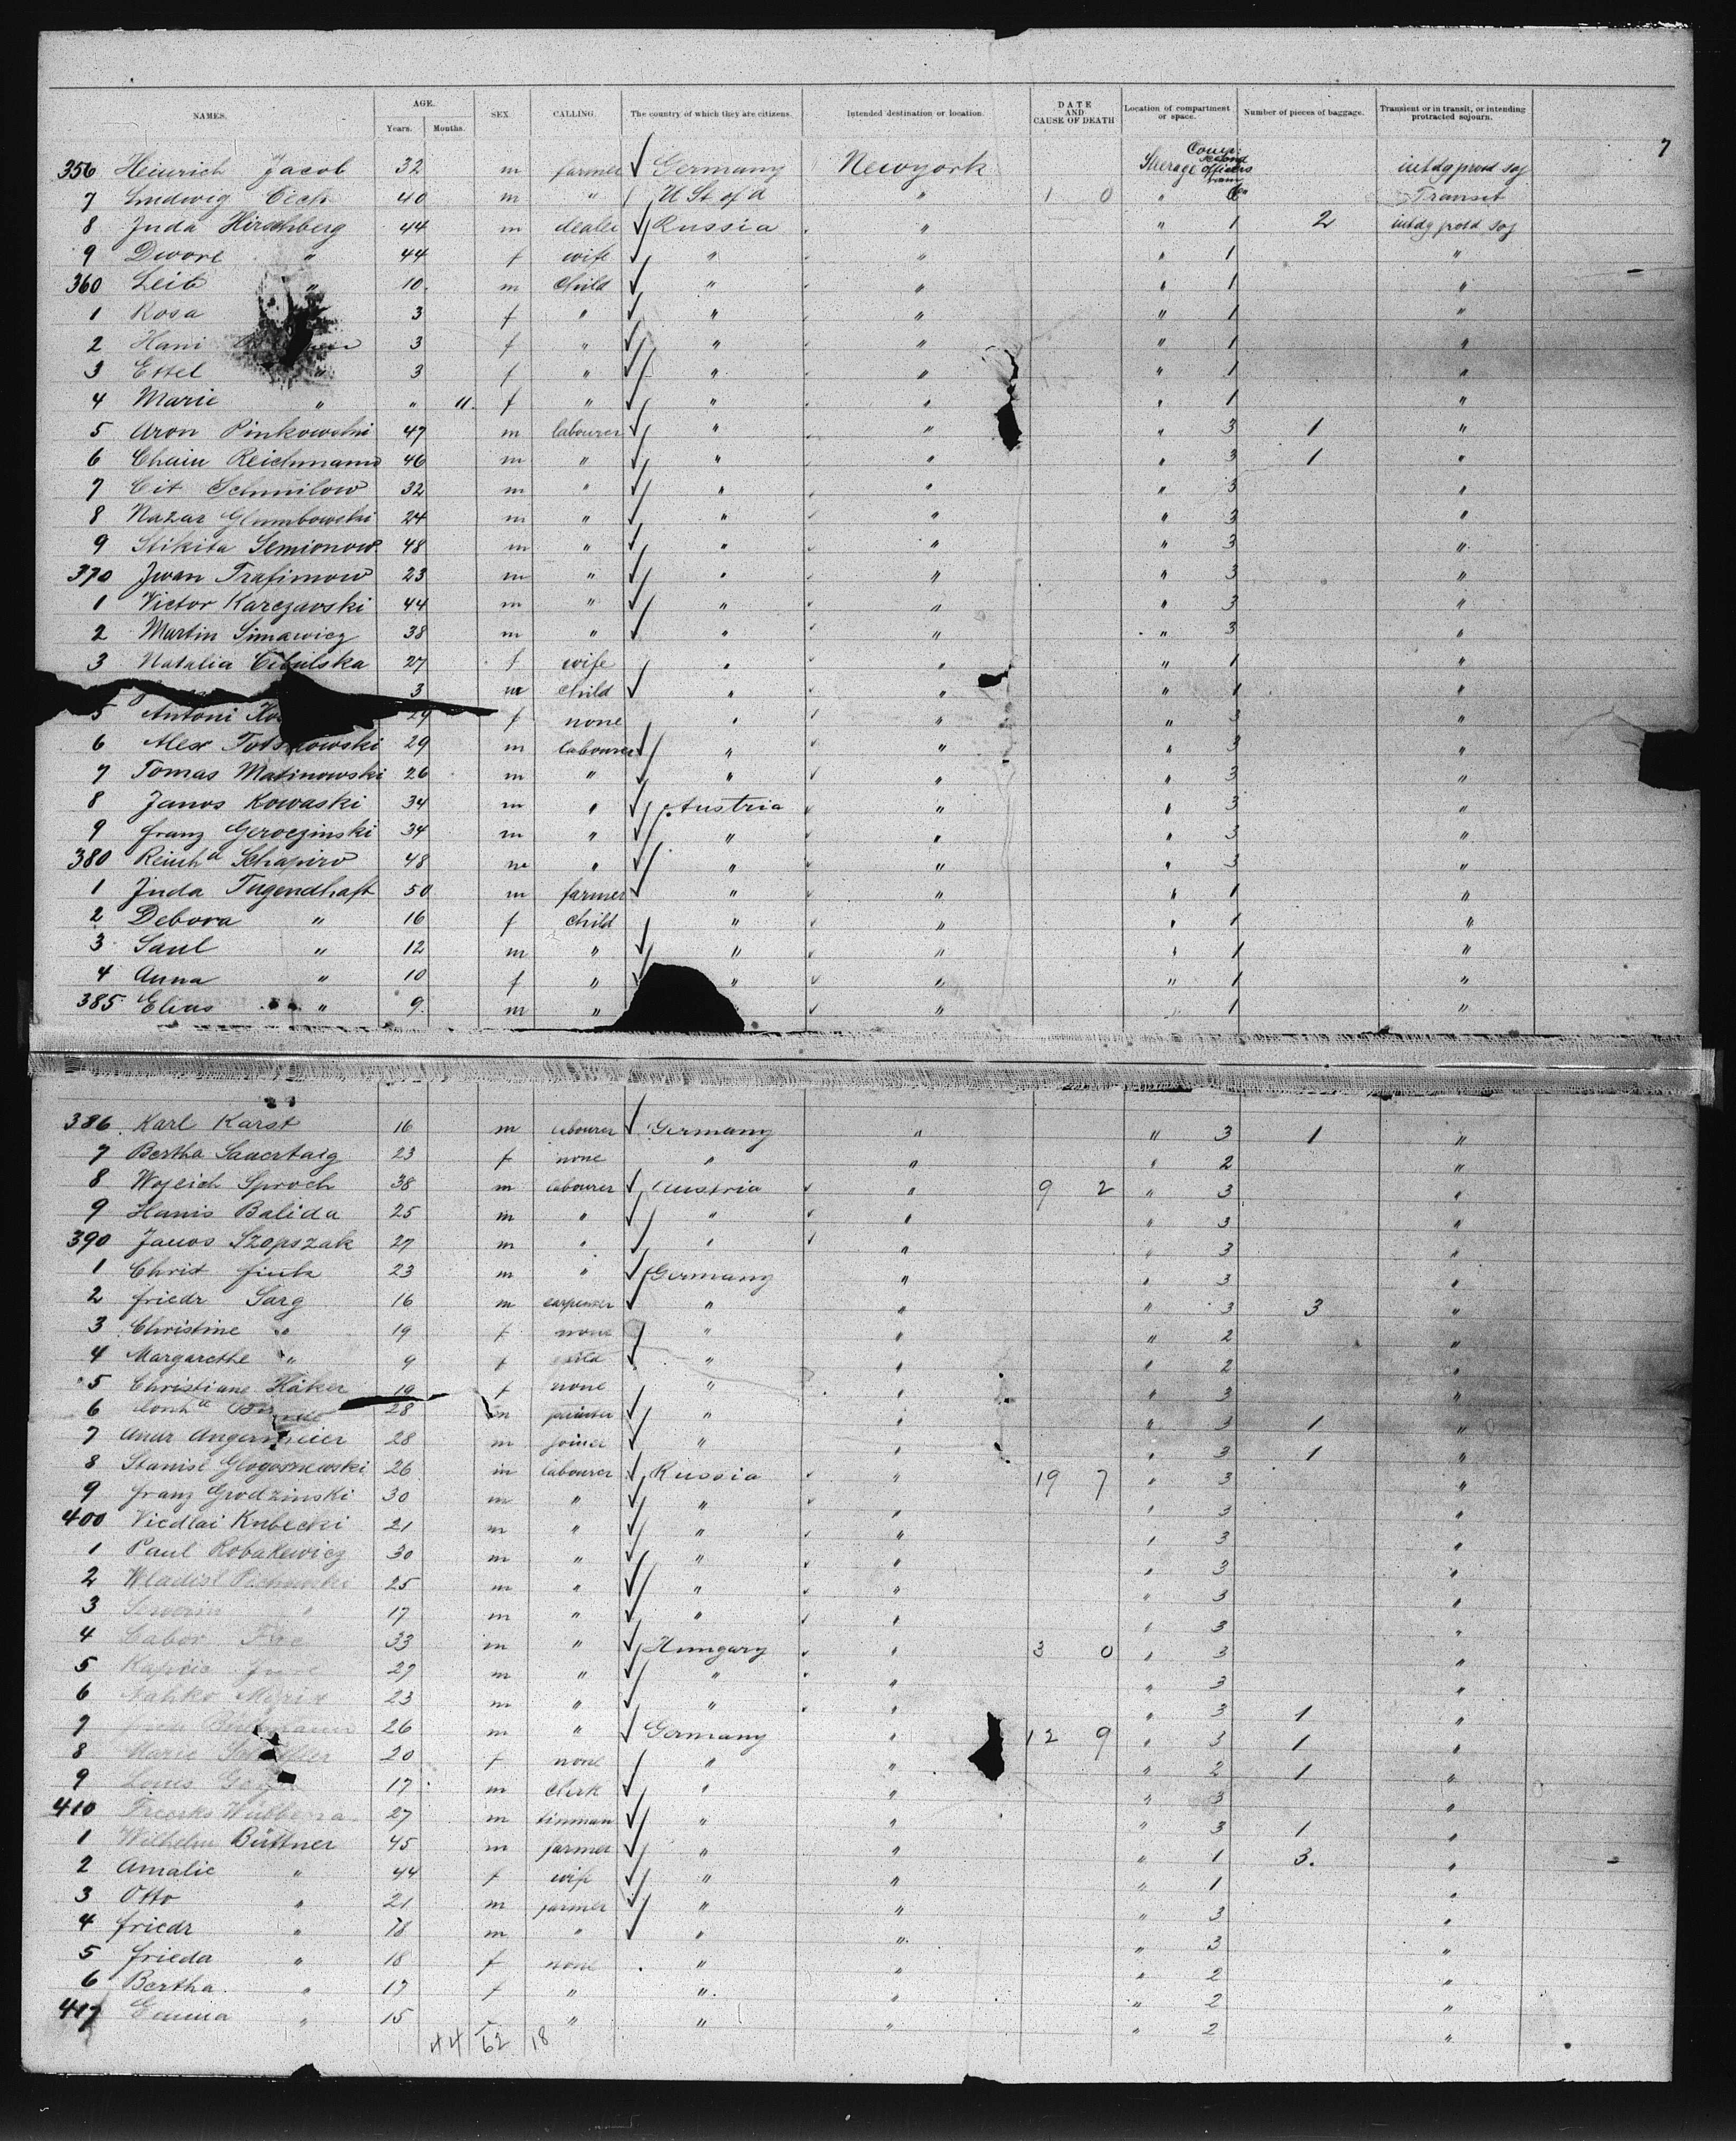 NAMES. AGE. Years. Months. SEX. CALLING. The country of which they are citizens. Intended destination or location. DATE AND CAUSE OF DEATH Location of compartment or space. Number of pieces of baggage. Transient or in transit, or intending protracted sojourn.
7
356 Heinrich Jacob 32 m farmer Germany Newyork Steerage intdg protd soj
7 Ludwig Cech 40 m " U St of a " 1 0 " Transit
8 Juda Hirschberg 44 m dealer Russia " " 1 2 intdg protd soj
9 Dwore " 44 f wife " " " 1 "
360 Leib " 10 m child " " " 1 "
1 Rosa 3 f " " " " 1 "
2 Hani 3 f " " " " 1 "
3 Ettel " 3 f " " " " 1 "
4 Marie " " 11 f " " " " 1 "
5 Aron Pinkowski 47 m labourer " " " 3 1 "
6 Chain Reichmann 46 m " " " " 3 1 "
7 Cit Schmilow 32 m " " " " 3 "
8 Nazar Glumbowski 24 m " " " " 3 "
9 Stikita Semionow 48 m " " " " 3 "
370 Iwan Trafimow 23 m " " " " 3 "
1 Victor Karczavski 44 m " " " " 3 "
2 Martin Simawicz 38 m " " " " 3 "
3 Natalia Cibulska 27 f wife " " " 1 "
3 m child " " " 1 "
5 Antoni 29 f none " " " 3 "
6 Alex 29 m labourer " " " 3 "
7 Tomas Matinowski 26 m " " " " 3 "
8 Janos Kowaski 34 m " Austria " " 3 "
9 Franz Geroczinski 34 m " " " " 3 "
380 Reinhd Schapiro 48 m " " " " 3 "
1 Juda Tugendhaft 50 m farmer " " " 1 "
2 Debora " 16 f child " " " 1 "
3 Saul " 12 m " " " " 1 "
4 Anna " 10 f " " " " 1 "
385 Elias " 9 m " " " 1 "
386 Karl Karst 16 m labourer Germany " " 3 1 "
7 Bertha Sauertaig 23 f none " " " 2 "
8 Wojcich Sproch 38 m labourer Austria " 9 2 " 3 "
9 Hanis Balida 25 m " " " " 3 "
390 Janos Szopszak 27 m " " " " 3 "
1 Christ Fink 23 m " Germany " " 3 "
2 Friedr Sarg 16 m carpenter " " " 3 3 "
3 Christine " 19 f none " " " 2 "
4 Margarethe " 9 f child " " " 2 "
5 Christiane Häker 19 f none " " " 3 "
6 28 m painter " " " 3 1 "
7 Angermeier 28 m joiner " " " 3 1 "
8 Stanisl Glogoszewski 26 m labourer Russia " 19 7 " 3 "
9 Franz Grodzinski 30 m " " " " 3 "
400 Kubecki 21 m " " " " 3 "
1 Paul Robakewicz 30 m " " " " 3 "
2 Wladisl 25 m " " " " 3 "
3 Severin " 17 m " " " " 3 "
4 Gabor 33 m " Hungary " 3 0 " 3 "
5 27 m " " " " 3 "
6 23 m " " " " 3 1 "
7 26 m " Germany " 12 9 " 3 1 "
8 Marie 20 f none " " " 2 1 "
9 Louis 17 m clerk " " " 3 "
410 27 m tinman " " " 3 1 "
1 Wilhelm Büttner 45 m farmer " " " 1 3. "
2 Amalie " 44 f wife " " " 1 "
3 Otto " 21 m farmer " " " 3 "
4 Friedr " 18 m " " " " 3 "
5 Frieda " 18 f none " " " 2 "
6 Bertha " 17 f " " " " 2 "
417 Emma " 15 " " " " 2 "
44 62 18